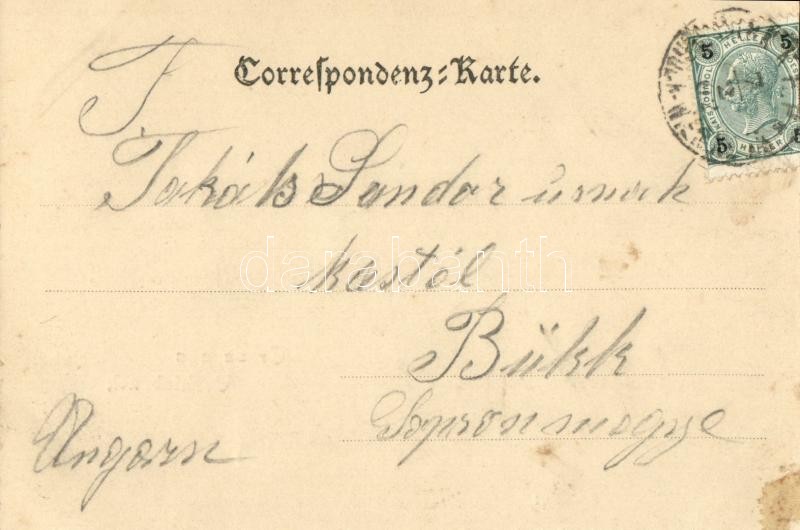 Correspondenz-Karte.
T.
Takáts Sandor úrnak
Bükk
Sopronmegye
Ungarn
5 HELLER 5
5 HELLER
darabanth